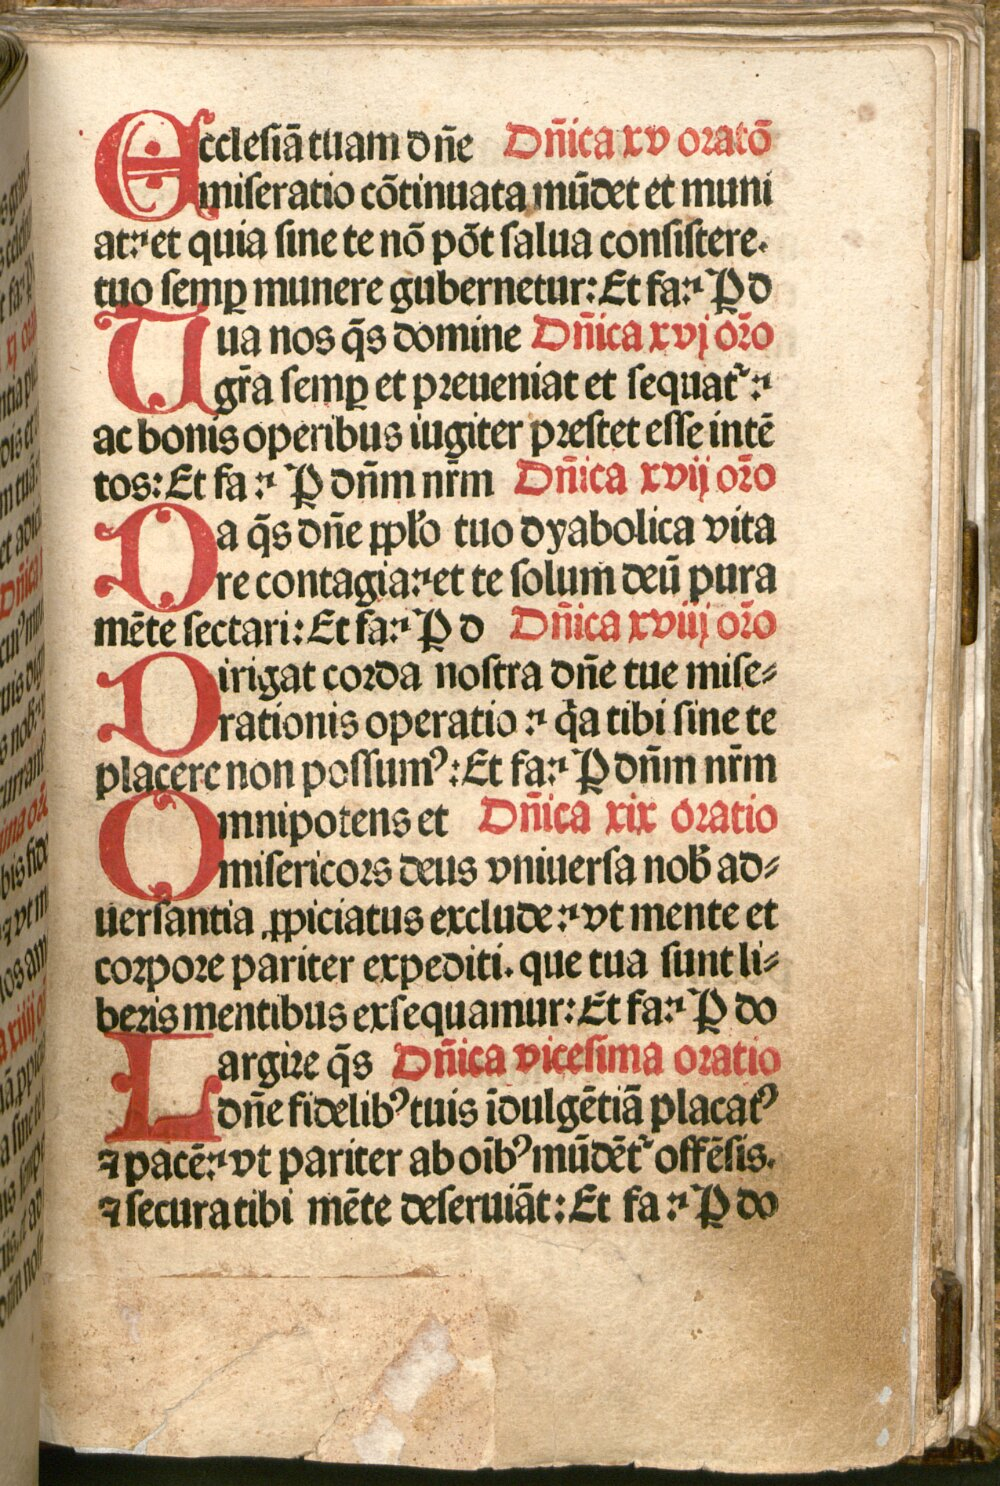 Ecclesiã tuam dñe Dñica xv oratõ
miseratio cõtinuata mũdet et muni
at: et quia sine te nõ põt salua consistere.
tuo semꝑ munere gubernetur: Et fa: P d
Tua nos q̃s domine Dñica xvj orõ
gr̃a semꝑ et preueniat et sequat᷑:
ac bonis operibus iugiter prestet esse intẽ
tos: Et fa: P dñm nr̃m Dñica xvij orõ
Da q̃s dñe pp̃lo tuo dyabolica vita
re contagia: et te solum deũ pura
mẽte sectari: Et fa: P d Dñica xviij orõ
Dirigat corda nostra dñe tue mise⸗
rationis operatio: q̃a tibi sine te
placere non possumꝰ: Et fa: P dñm nr̃m
Omnipotens et Dñica xix oratio
misericors deus vniuersa nob̃ ad⸗
uersantia ꝓpiciatus exclude: vt mente et
corpore pariter expediti. que tua sunt li⸗
beris mentibus exsequamur: Et fa: P do
Largire q̃s Dñica vicesima oratio
dñe fidelibꝰ tuis ĩdulgẽtiã placatꝰ
⁊ pacẽ: vt pariter ab oĩbꝰ mũdẽt᷑ offẽsis.
⁊ secura tibi mẽte deseruiãt: Et fa: P do